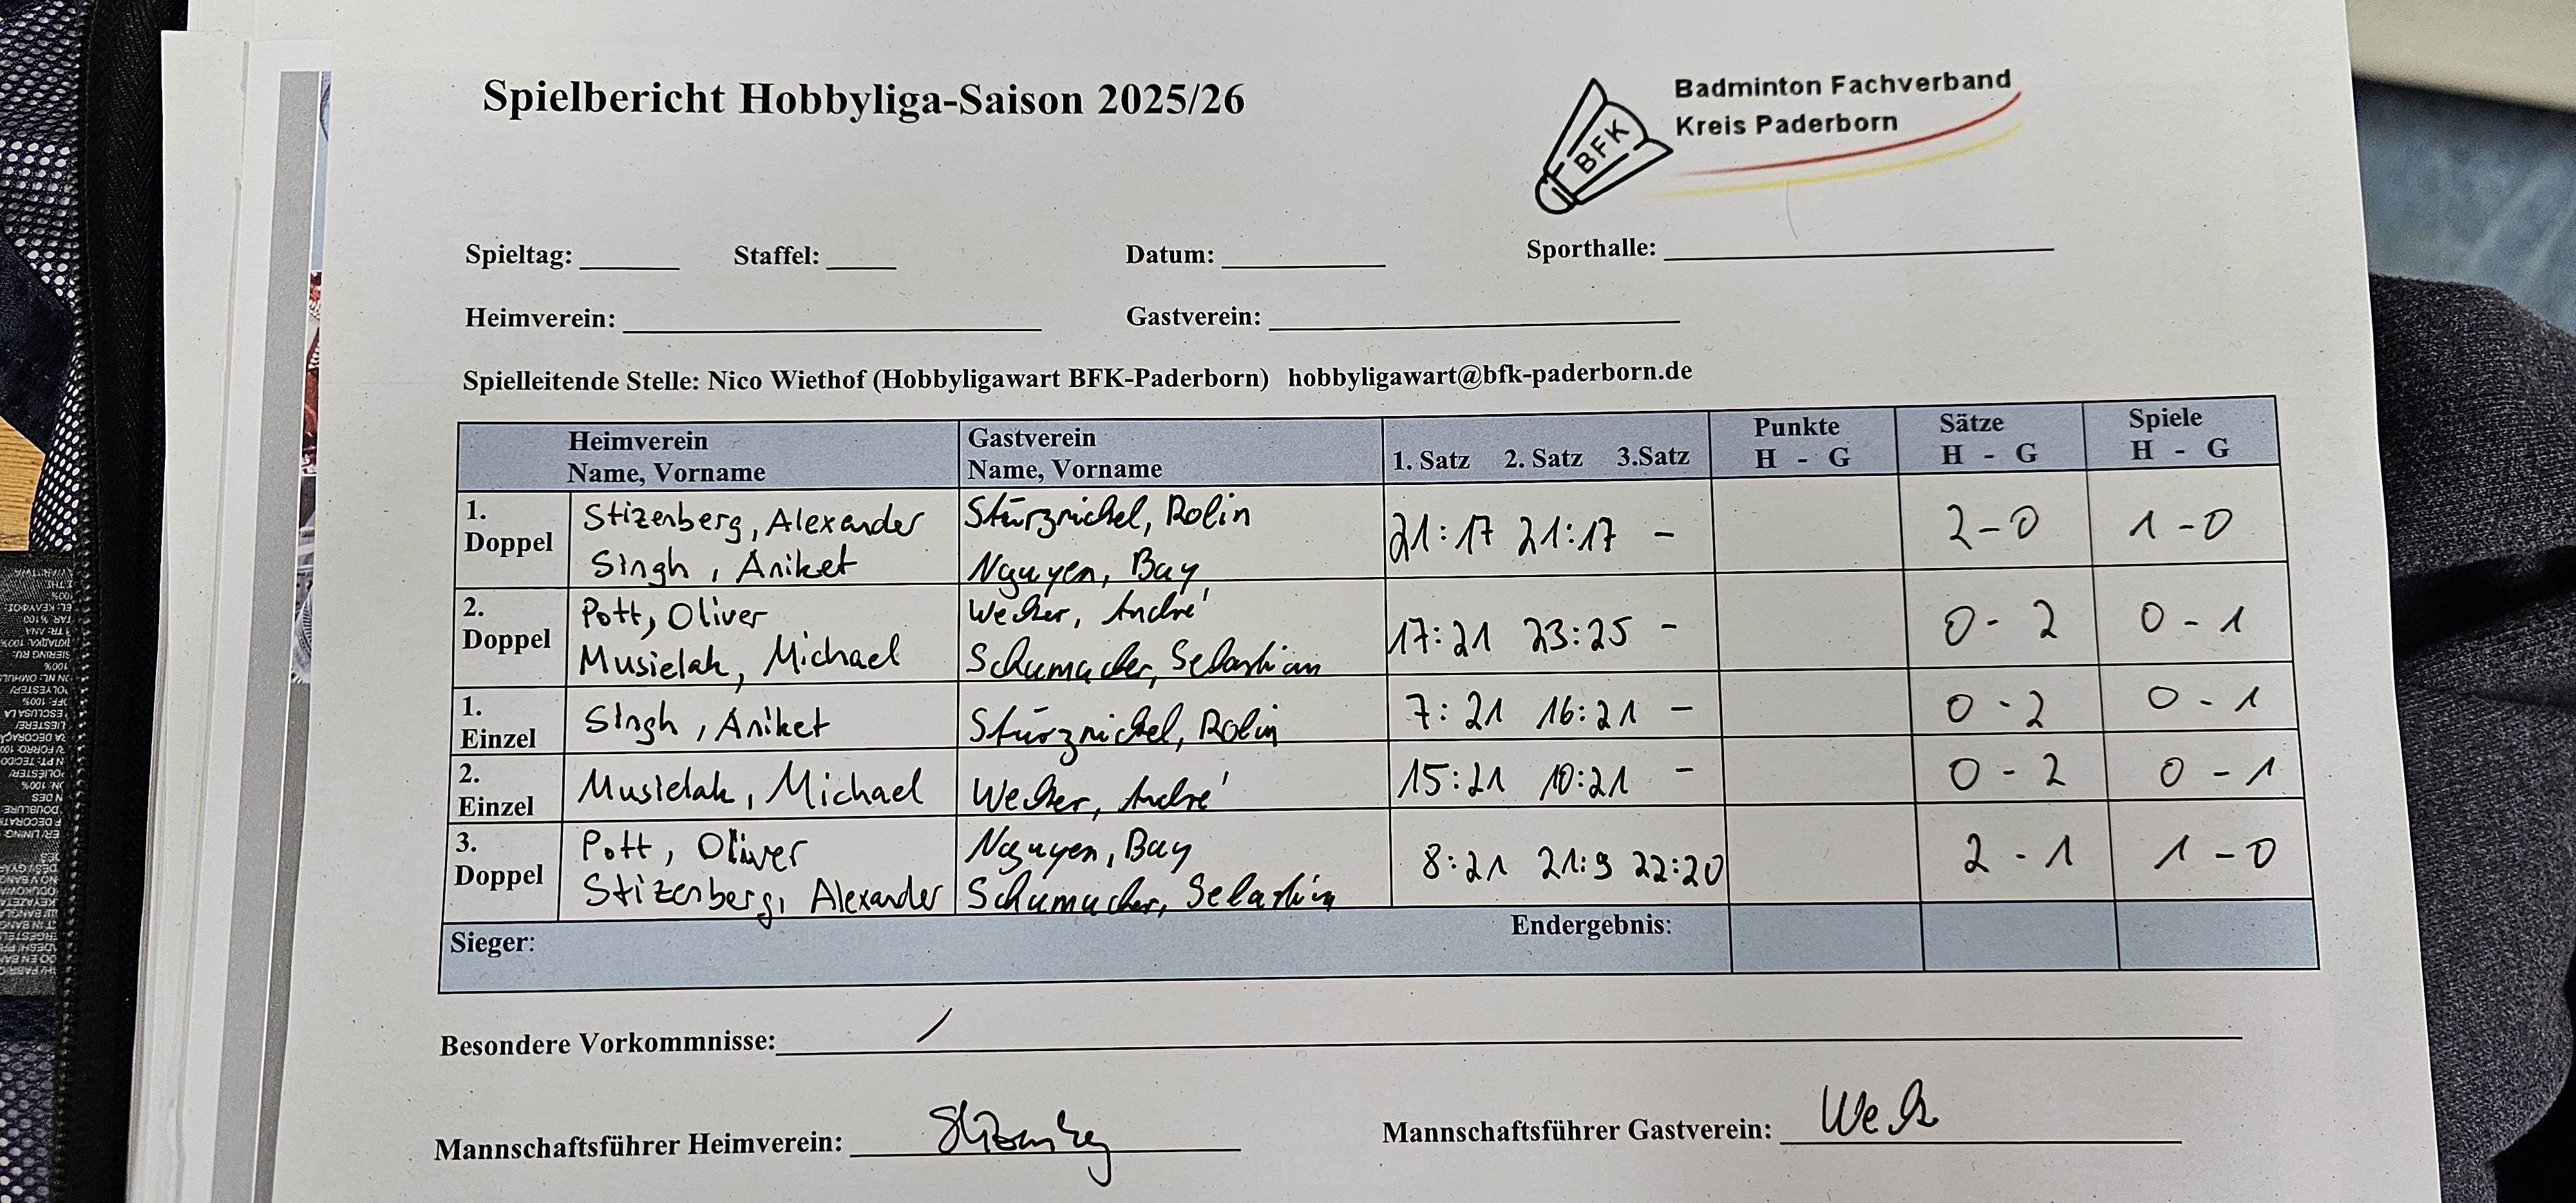 Spielbericht Hobbyliga-Saison 2025/26
Badminton Fachverband
Kreis Paderborn
BFK
Spieltag: Staffel: Datum: Sporthalle:
Heimverein: Gastverein:
Spielleitende Stelle: Nico Wiethof (Hobbyligawart BFK-Paderborn) hobbyligawart@bfk-paderborn.de
Heimverein Gastverein Punkte Sätze Spiele
Name, Vorname Name, Vorname 1. Satz 2. Satz 3.Satz H - G H - G H - G
1. Doppel Stizenberg, Alexander Stürznickel, Rolin 21:17 21:17 - 2-0 1-0
Singh, Aniket Nguyen, Bay
2. Doppel Pott, Oliver Wecker, André 17:21 23:25 - 0-2 0-1
Musielak, Michael Schumacher, Sebastian
1. Einzel Singh, Aniket Stürznickel, Rolin 7:21 16:21 - 0-2 0-1
2. Einzel Musielak, Michael Wecker, André 15:21 10:21 - 0-2 0-1
3. Doppel Pott, Oliver Nguyen, Bay 8:21 21:9 22:20 2-1 1-0
Stizenberg, Alexander Schumacher, Sebastian
Sieger: Endergebnis:
Besondere Vorkommnisse: /
Mannschaftsführer Heimverein: Mannschaftsführer Gastverein: